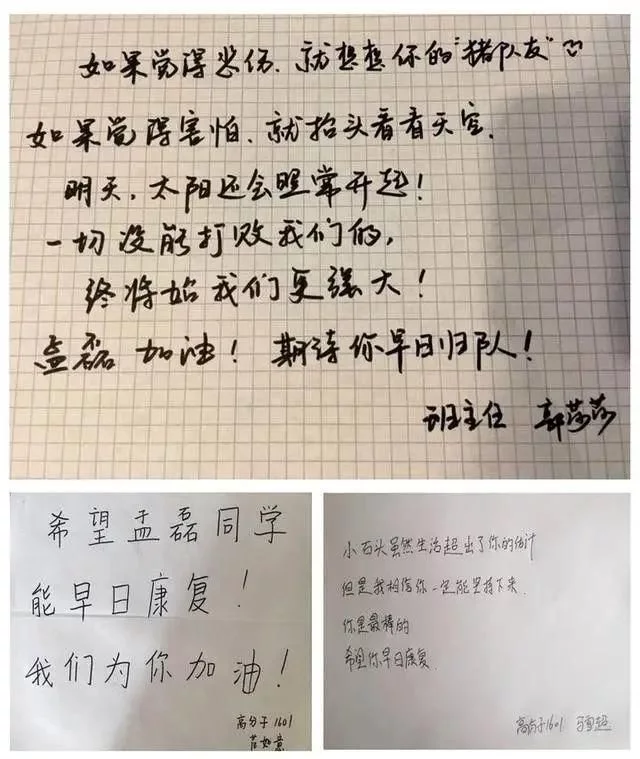 如果觉得悲伤、就想想你的"猪队友"
如果觉得害怕、就抬头看看天空.
明天,太阳还会照常升起!
一切没能打败我们的,
终将始我们更强大!
孟磊 加油! 期待你早日归队!
班主任 郭莎莎
希望孟磊同学
能早日康复!
我们为你加油!
高分子1601
如意
小石头虽然生活超出了你的估计
但是我相信你一定能坚持下来.
你是最棒的
希望你早日康复.
高分子1601 马 超